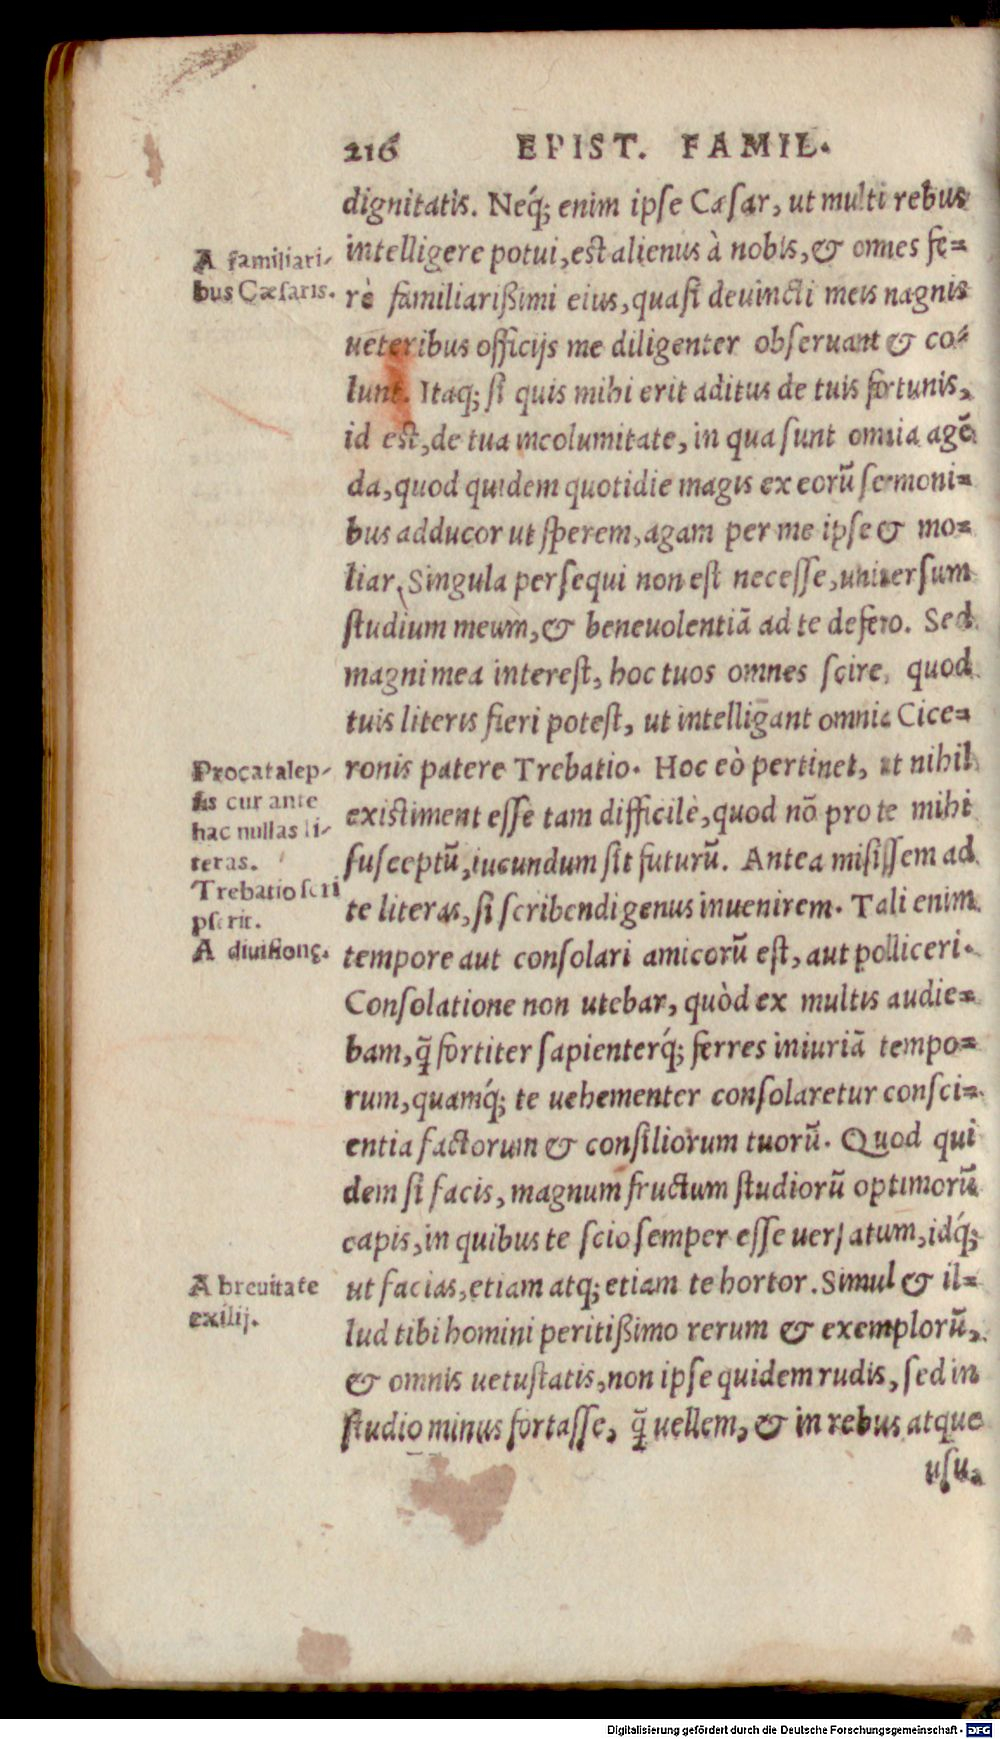 216 EPIST. FAMIL.
dignitatis. Neq́; enim ipse Cæsar, ut multi rebus
intelligere potui, est alienus à nobis, & omnes fe=
rè familiarißimi eius, quasi deuincti meis magnis
ueteribus officijs me diligenter obseruant & co=
lunt. Itaq; si quis mihi erit aditus de tuis fortunis,
id est, de tua incolumitate, in qua sunt omnia agē
da, quod quidem quotidie magis ex eorū sermoni=
bus adducor ut sperem, agam per me ipse & mo=
liar. Singula persequi non est necesse, uniuersum
studium meum, & beneuolentiā ad te defero. Sed
magni mea interest, hoc tuos omnes scire, quod
tuis literis fieri potest, ut intelligant omnia Cice=
ronis patere Trebatio. Hoc eò pertinet, ut nihil
existiment esse tam difficile, quod nō pro te mihi
susceptū, iucundum sit futurū. Antea misissem ad
te literas, si scribendi genus inuenirem. Tali enim
tempore aut consolari amicorū est, aut polliceri.
Consolatione non utebar, quòd ex multis audie=
bam, q̄ fortiter sapienterq́; ferres iniuriā tempo=
rum, quamq́; te uehementer consolaretur consci=
entia factorum & consiliorum tuorū. Quod qui
dem si facis, magnum fructum studiorū optimorū
capis, in quibus te scio semper esse uersatum, idq́;
ut facias, etiam atq; etiam te hortor. Simul & il=
lud tibi homini peritißimo rerum & exemplorū,
& omnis uetustatis, non ipse quidem rudis, sed in
studio minus fortasse, q̄ uellem, & in rebus atque
usu.
A familiari-
bus Cæsaris.
Procatalep-
sis cur ante
hac nullas li-
teras.
Trebatio scri
pserit.
A diuisione.
A breuitate
exilij.
Digitalisierung gefördert durch die Deutsche Forschungsgemeinschaft - DFG